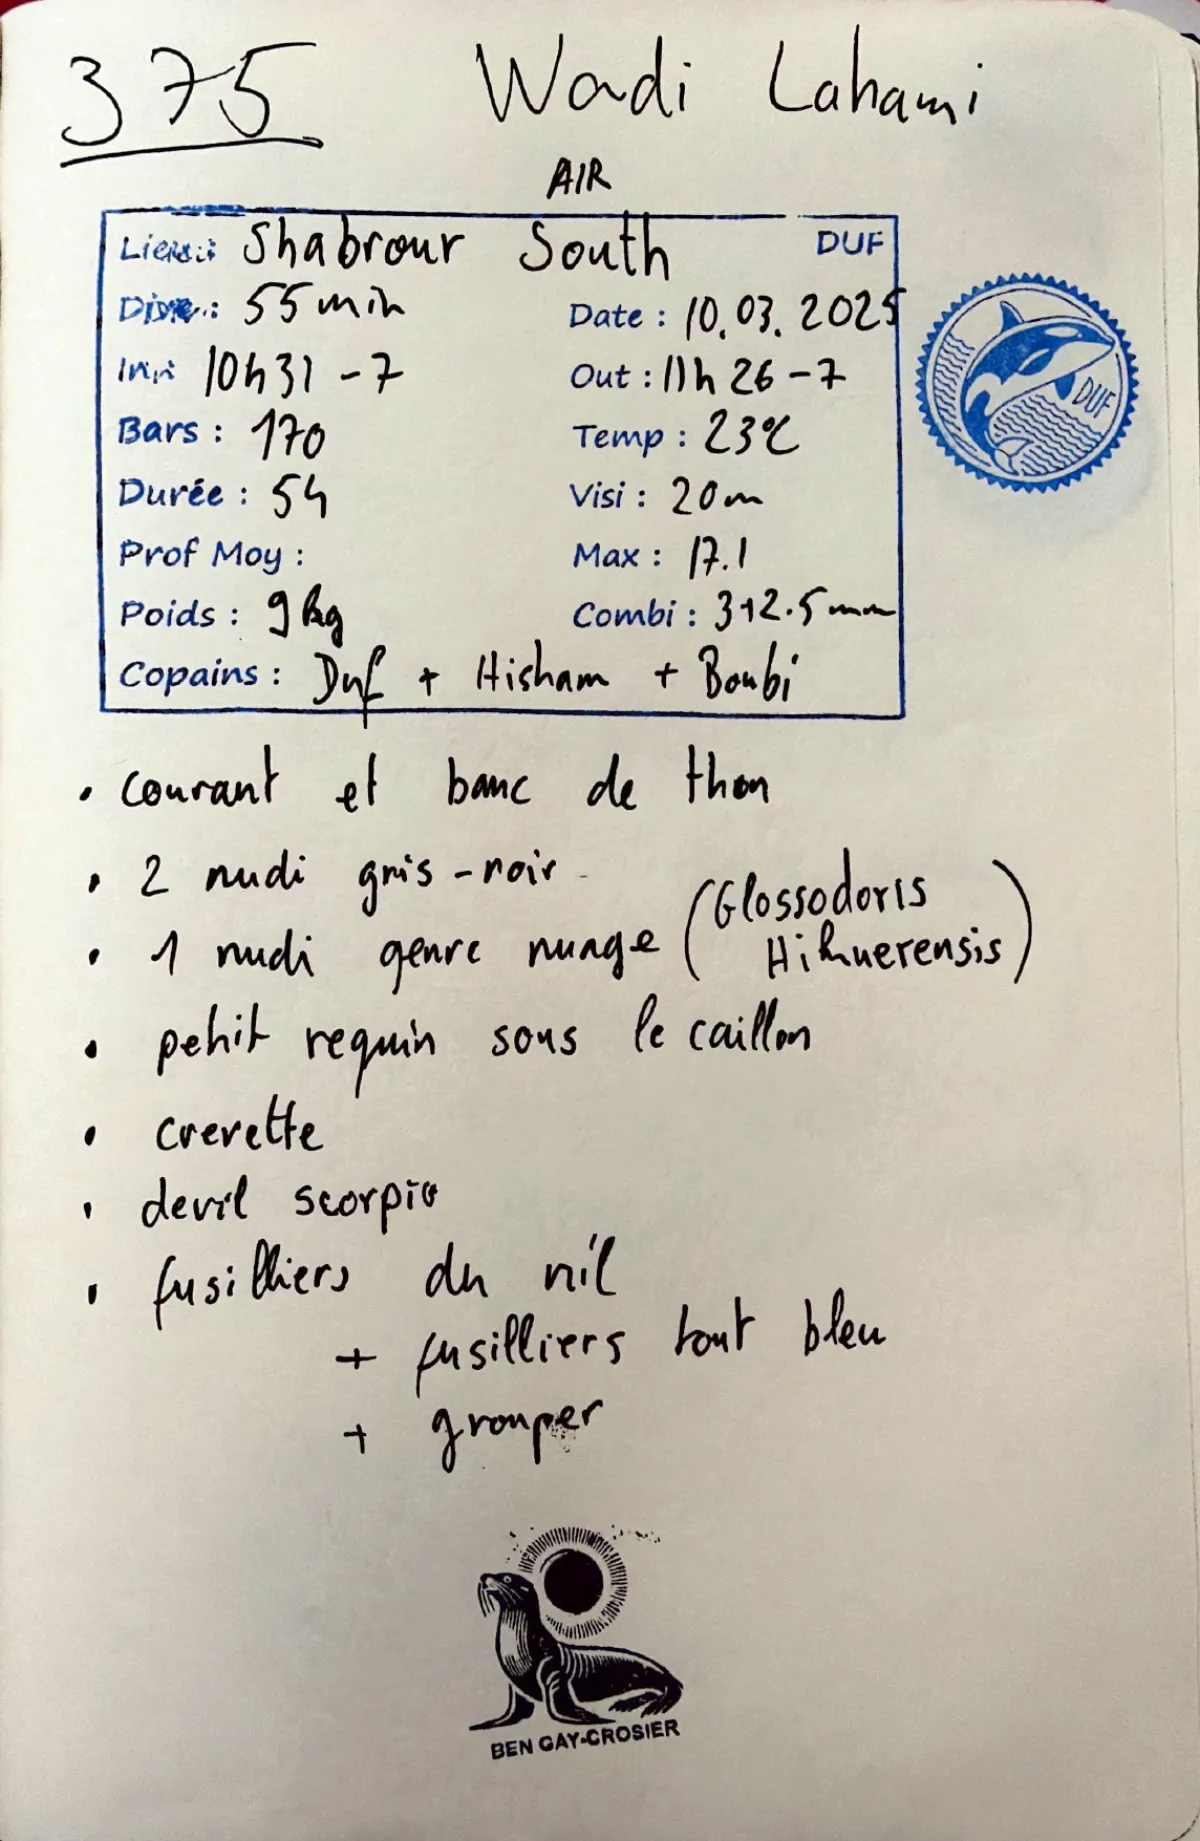 375 Wadi Lahami
AIR
Lieu : Shabrour South DUF
Dive : 55 min Date : 10.03.2025
In : 10h31 -7 Out : 11h 26 -7
Bars : 170 Temp : 23°C
Durée : 54 Visi : 20m
Prof Moy : Max : 17.1
Poids : 9 kg Combi : 3+2.5 mm
Copains : Duf + Hisham + Boubi
DUF
• courant et banc de thon
• 2 nudi gris-noir
• 1 nudi genre nuage (Glossodoris
Hikuerensis)
• petit requin sous le caillou
• crevette
• devil scorpio
• fusilliers du nil
+ fusilliers tout bleu
+ grouper
BEN GAY-CROSIER